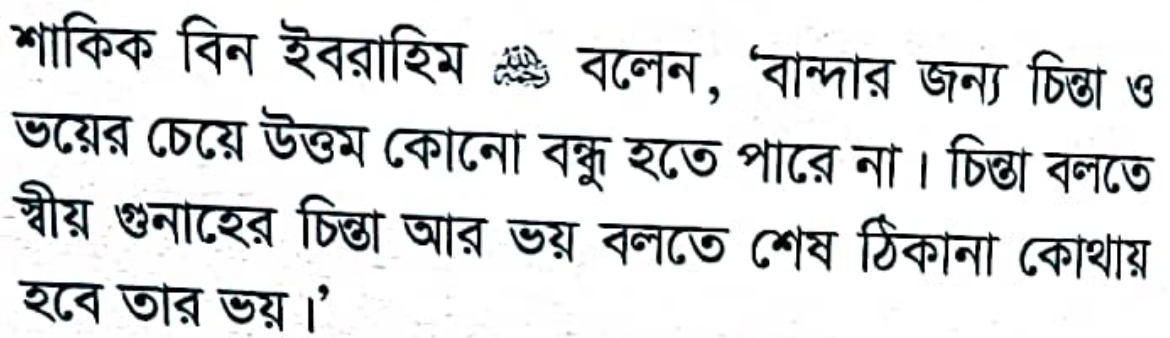 শাকিক বিন ইবরাহিম ﵀ বলেন, ‘বান্দার জন্য চিন্তা ও
ভয়ের চেয়ে উত্তম কোনো বন্ধু হতে পারে না। চিন্তা বলতে
স্বীয় গুনাহের চিন্তা আর ভয় বলতে শেষ ঠিকানা কোথায়
হবে তার ভয়।’